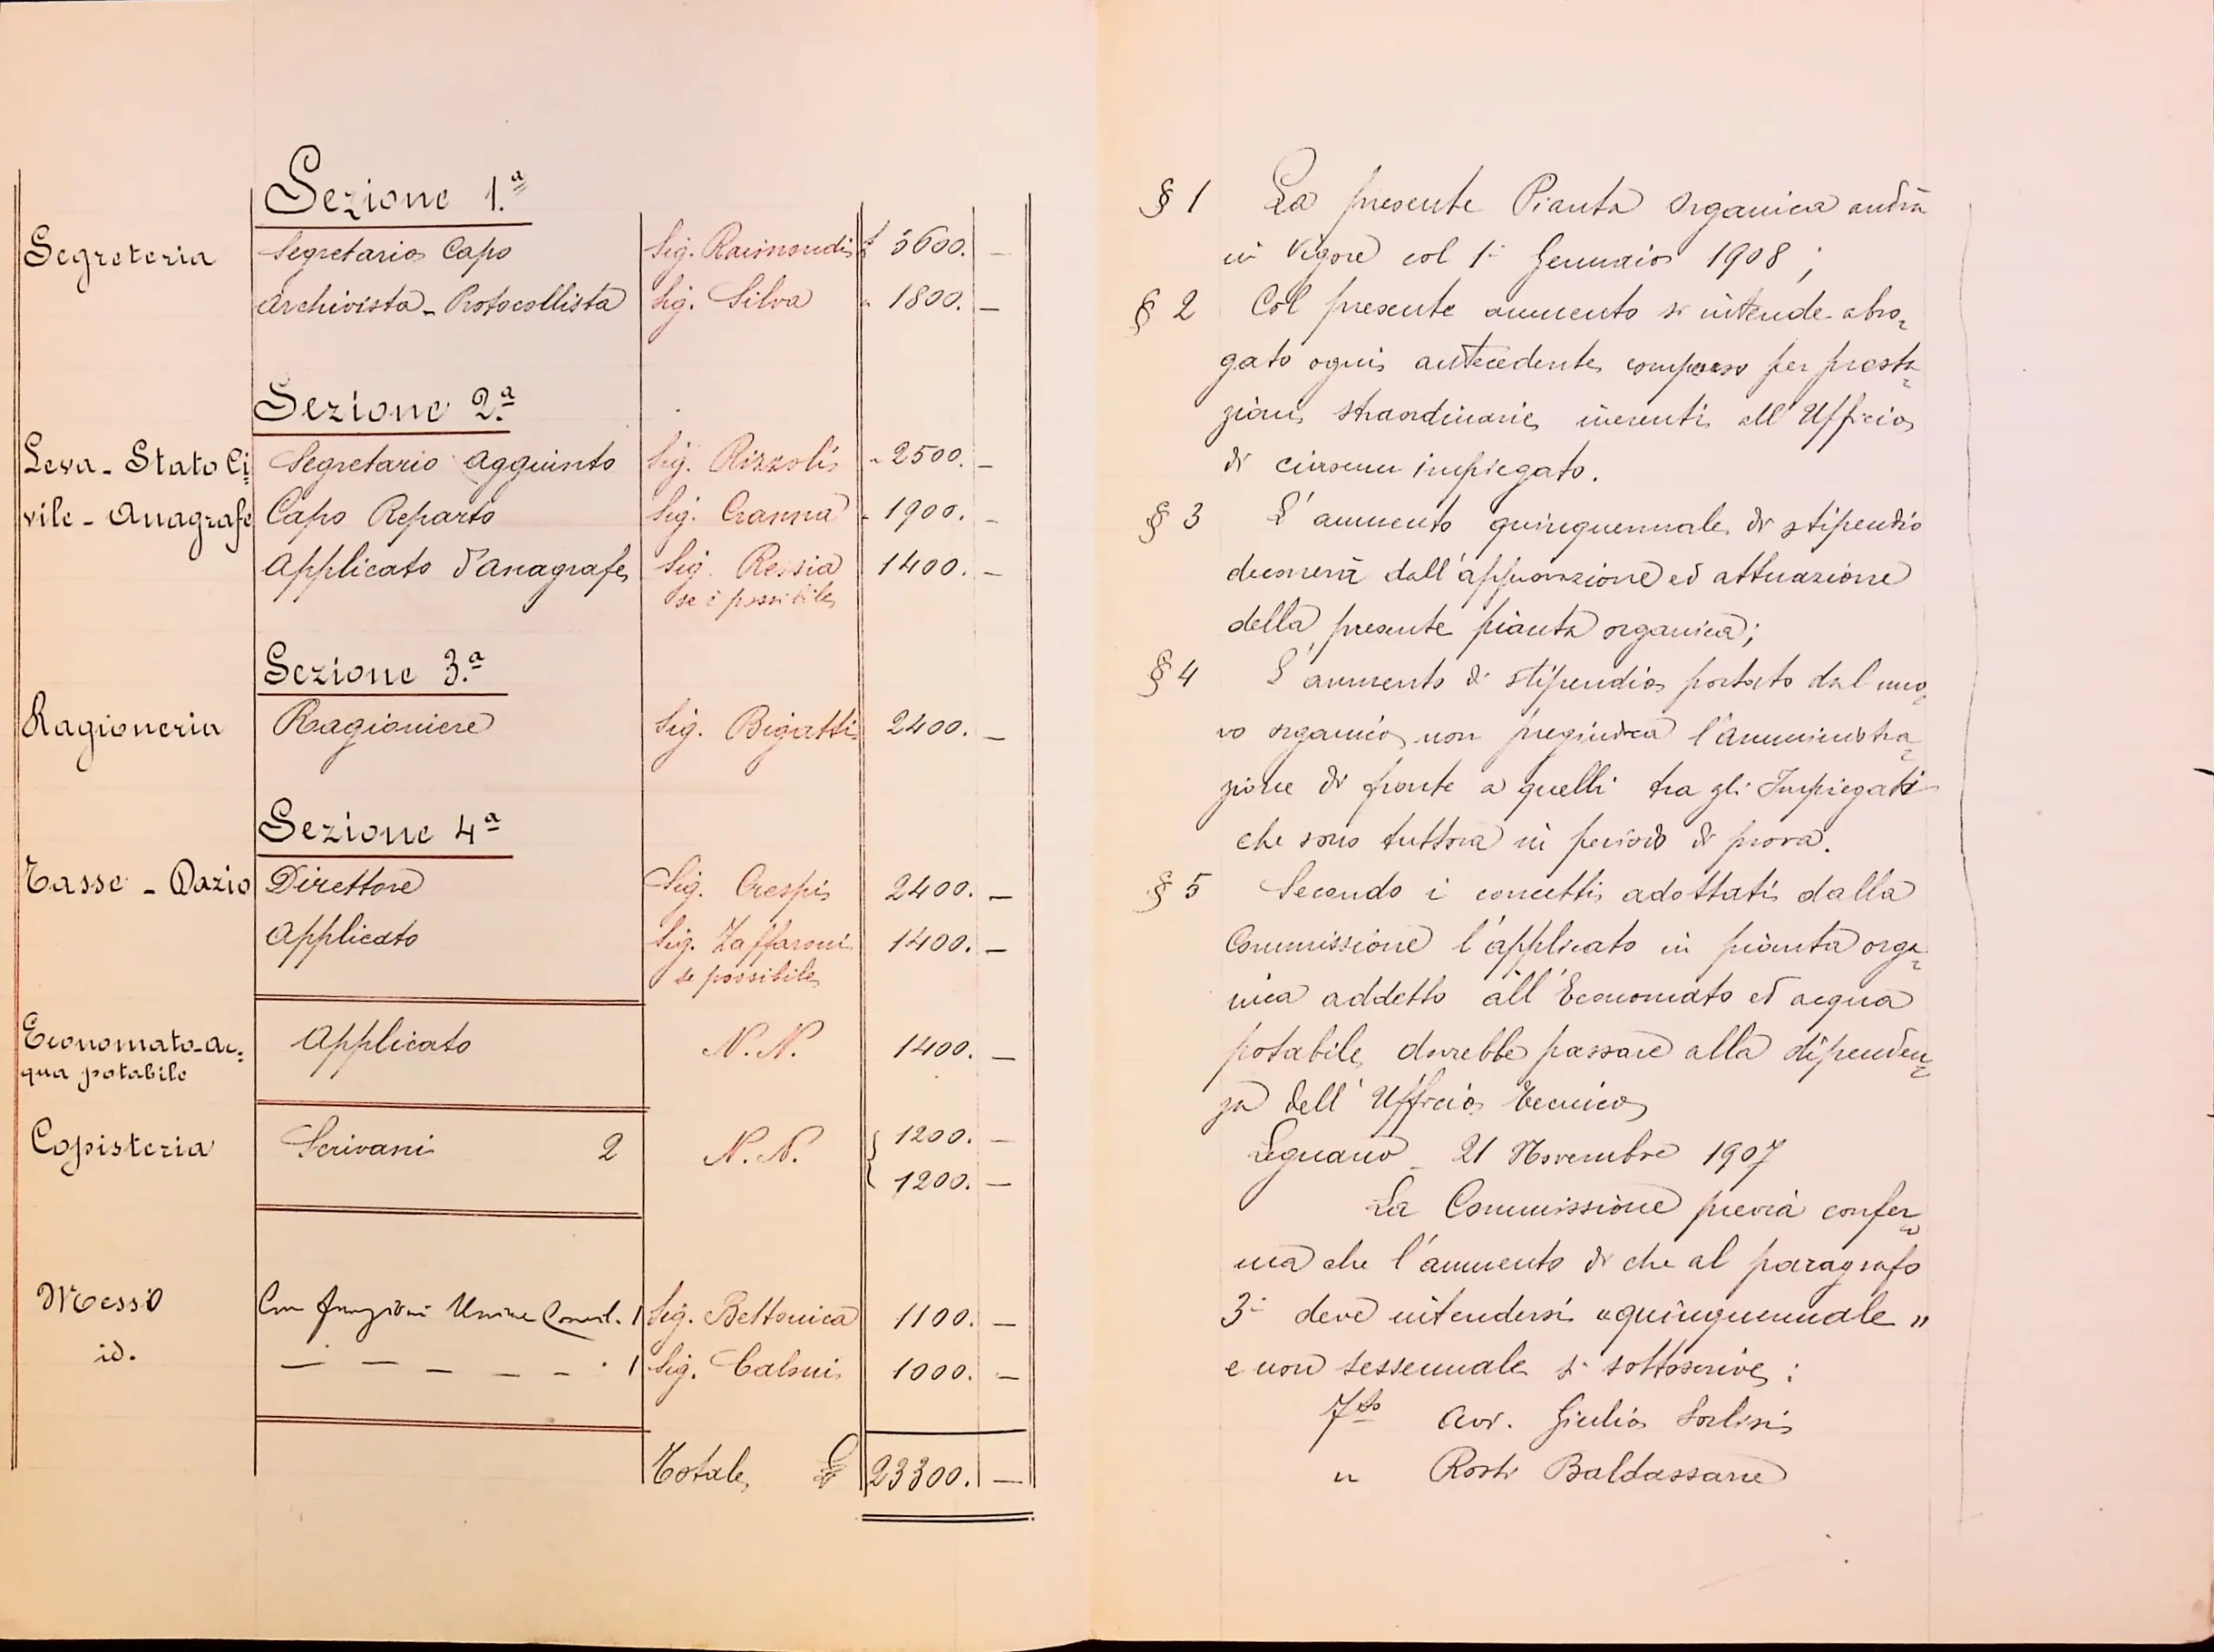 Sezione 1.ª
Segreteria Segretario Capo Sig. Raimondi £ 3600. —
Archivista - Protocollista Sig. Silva " 1800. —
Sezione 2.ª
Leva - Stato Ci= Segretario aggiunto Sig. Rizzoli " 2500. —
vile - Anagrafe Capo Reparto Sig. Cranna " 1900. —
Applicato d'anagrafe Sig. Ressia 1400. —
se è possibile
Sezione 3.ª
Ragioneria Ragioniere Sig. Bigatti 2400. —
Sezione 4ª
Tasse - Dazio Direttore Sig. Crespi 2400. —
Applicato Sig. Zaffaroni 1400. —
se possibile
Economato - Ac= Applicato N. N. 1400. —
qua potabile
Copisteria Scrivani 2 N. N. 1200. —
1200. —
Messo Con funzioni Usciere Concil. 1 Sig. Bettonica 1100. —
id. — — — — - 1 Sig. Calini 1000. —
Totale £ 23300. —
§ 1 La presente Pianta Organica andrà
in vigore col 1° Gennaio 1908 ;
§ 2 Col presente aumento si intende abro=
gato ogni antecedente compenso per presta=
zioni straordinarie inerenti all'Ufficio
di ciascun impiegato.
§ 3 L'aumento quinquennale di stipendio
decorrerà dall'approvazione ed attuazione
della presente pianta organica;
§ 4 L'aumento di stipendio portato dal nuo=
vo organico non pregiudica l'Amministra=
zione di fronte a quelli tra gli Impiegati
che sono tuttora in periodo di prova.
§ 5 Secondo i concetti adottati dalla
Commissione l'applicato in pianta orga=
nica addetto all'Economato ed acqua
potabile dovrebbe passare alla dipenden=
za dell'Ufficio Tecnico
Legnano - 21 Novembre 1907
La Commissione previa confer=
ma che l'aumento di che al paragrafo
3° deve intendersi "quinquennale"
e non sessennale si sottoscrive :
Fto Avv. Giulio
" Rosti Baldassarre